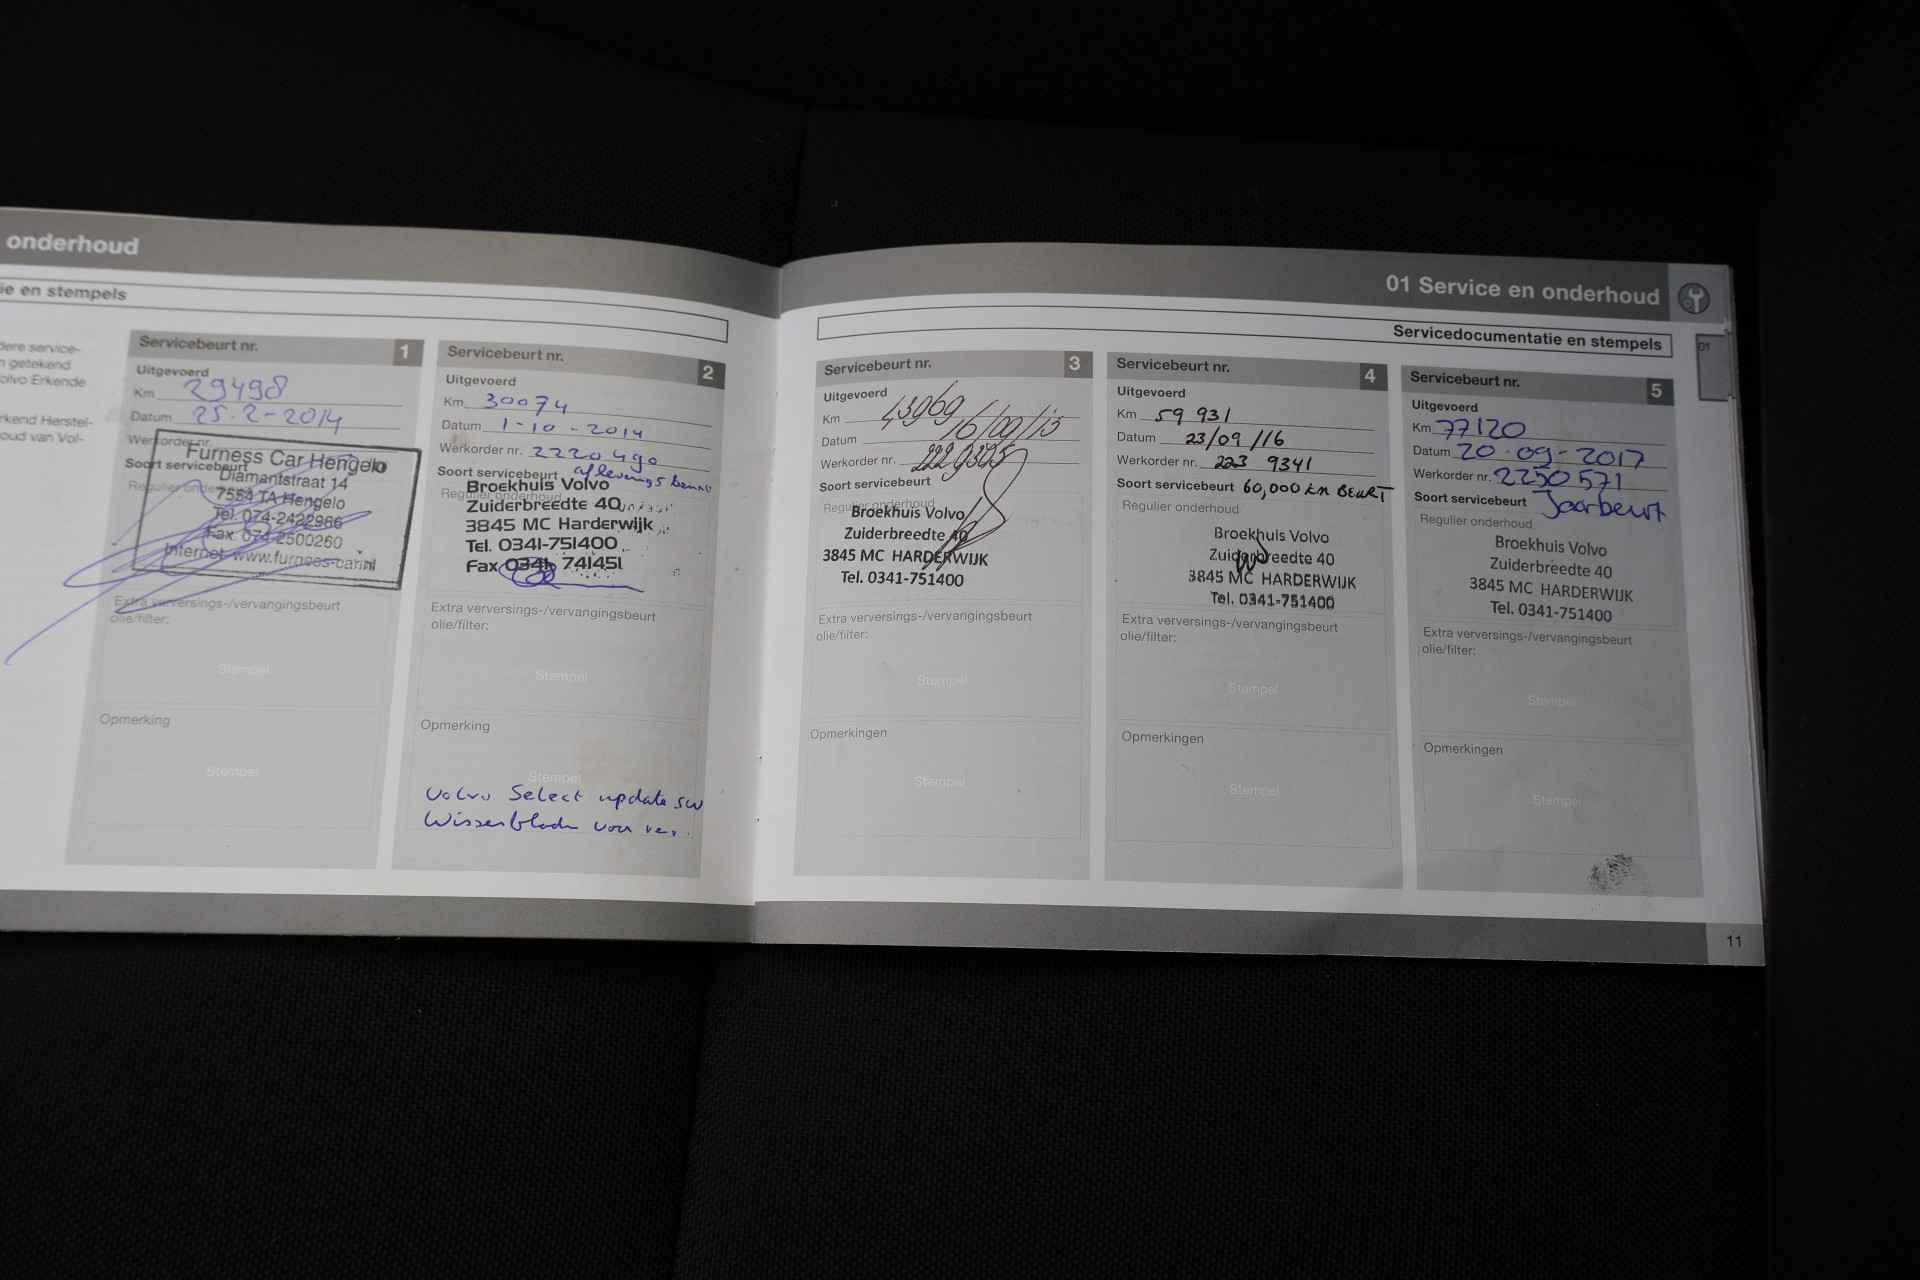 onderhoud
ie en stempels
dere service-
n getekend
olvo Erkende
rkend Herstel-
oud van Vol-
Servicebeurt nr. 1
Uitgevoerd
Km 29498
Datum 25-2-2014
Werkorder nr.
Soort servicebeurt
Regulier onderhoud
Furness Car Hengelo
Diamantstraat 14
7554 TA Hengelo
Tel. 074-2422966
Fax. 074-2500260
Internet: www.furness-car.nl
Extra verversings-/vervangingsbeurt
olie/filter:
Stempel
Opmerking
Stempel
Servicebeurt nr. 2
Uitgevoerd
Km 30074
Datum 1-10-2014
Werkorder nr. 2220490
Soort servicebeurt afleverings beurt
Regulier onderhoud
Broekhuis Volvo
Zuiderbreedte 40
3845 MC Harderwijk
Tel. 0341-751400
Fax 0341- 741451
Extra verversings-/vervangingsbeurt
olie/filter:
Stempel
Opmerking
Stempel
Volvo Select update sw
Wisserbladen voor
01 Service en onderhoud
Servicedocumentatie en stempels
01
Servicebeurt nr. 3
Uitgevoerd
Km 43969
Datum 16/09/15
Werkorder nr.
Soort servicebeurt
Regulier onderhoud
Broekhuis Volvo
Zuiderbreedte 40
3845 MC HARDERWIJK
Tel. 0341-751400
Extra verversings-/vervangingsbeurt
olie/filter:
Stempel
Opmerkingen
Stempel
Servicebeurt nr. 4
Uitgevoerd
Km 59 931
Datum 23/09/16
Werkorder nr. 223 9341
Soort servicebeurt 60,000 km BEURT
Regulier onderhoud
Broekhuis Volvo
Zuiderbreedte 40
3845 MC HARDERWIJK
Tel. 0341-751400
Extra verversings-/vervangingsbeurt
olie/filter:
Stempel
Opmerkingen
Stempel
Servicebeurt nr. 5
Uitgevoerd
Km 77120
Datum 20-09-2017
Werkorder nr. 2250571
Soort servicebeurt Jaarbeurt
Regulier onderhoud
Broekhuis Volvo
Zuiderbreedte 40
3845 MC HARDERWIJK
Tel. 0341-751400
Extra verversings-/vervangingsbeurt
olie/filter:
Stempel
Opmerkingen
Stempel
11